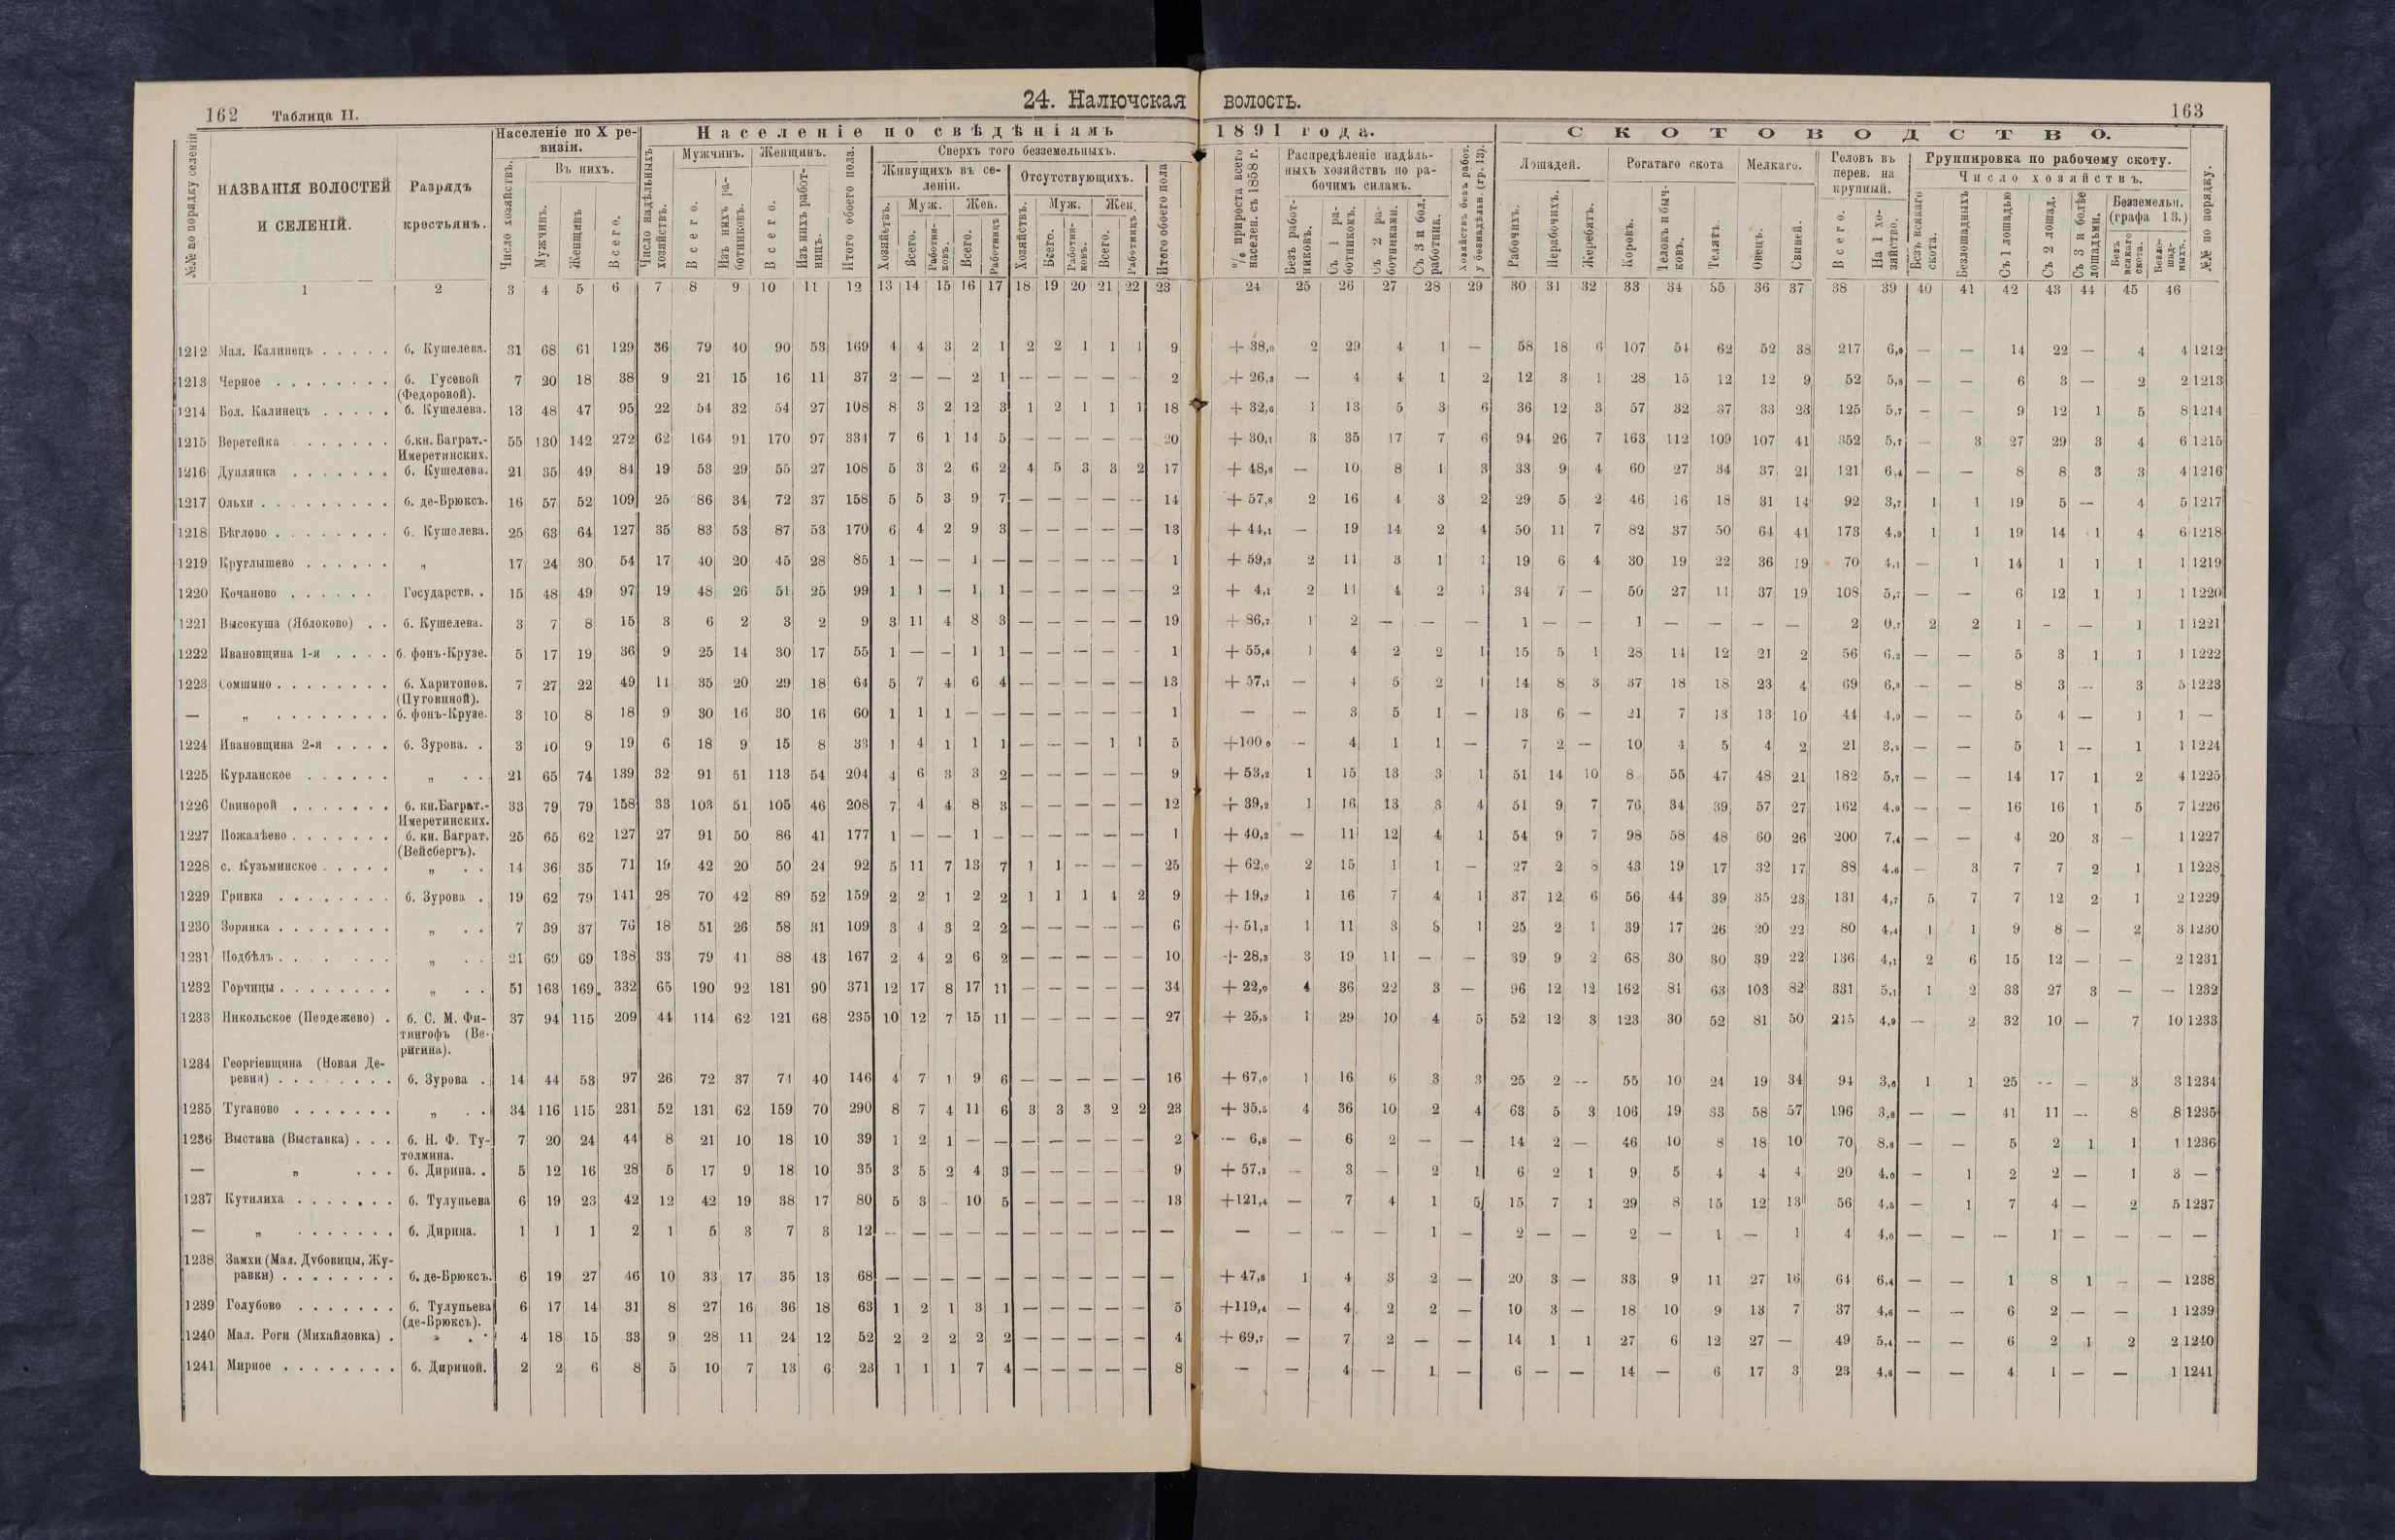 162 Таблица II.
24. Налючская волость.
163
№№ по порядку селеній
НАЗВАНІЯ ВОЛОСТЕЙ И СЕЛЕНІЙ.
Разрядъ крестьянъ.
Населеніе по X ревизіи.
Число хозяйствъ.
Въ нихъ.
Мужчинъ.
Женщинъ
Всего.
Населеніе по свѣдѣніямъ 1891 года.
Число надѣльныхъ хозяйствъ.
Мужчинъ.
Всего.
Изъ нихъ работниковъ.
Женщинъ.
Всего.
Изъ нихъ работницъ.
Итого обоего пола.
Сверхъ того безземельныхъ.
Живущихъ въ селеніи.
Отсутствующихъ.
Хозяйствъ.
Муж.
Жен.
Всего.
Работниковъ.
Всего.
Работницъ
Хозяйствъ.
Муж.
Жен.
Всего.
Работниковъ.
Всего.
Работницъ.
Итого обоего пола
% прироста всего населен. съ 1858 г.
Распредѣленіе надѣльныхъ хозяйствъ по рабочимъ силамъ.
Безъ работниковъ.
Съ 1 работникомъ.
Съ 2 работниками.
Съ 3 и бол. работник.
Хозяйствъ безъ работ. у безнадѣльн. (гр. 13).
СКОТОВОДСТВО.
Лошадей.
Рабочихъ.
Нерабочихъ.
Жеребятъ.
Рогатаго скота
Коровъ.
Телокъ и бычковъ.
Телятъ.
Мелкаго.
Овецъ.
Свиней.
Головъ въ перев. на крупный.
Всего.
На 1 хозяйство.
Группировка по рабочему скоту.
Число хозяйствъ.
Безъ всякаго скота.
Безлошадныхъ
Съ 1 лошадью
Съ 2 лошад.
Съ 3 и болѣе лошадьми.
Безземельн. (графа 13.)
Безъ всякаго скота.
Безлошадныхъ.
№№ по порядку.
1 2 3 4 5 6 7 8 9 10 11 12 13 14 15 16 17 18 19 20 21 22 23 24 25 26 27 28 29 30 31 32 33 34 35 36 37 38 39 40 41 42 43 44 45 46
1212 Мал. Калинецъ . . . . . б. Кушелева. 31 68 61 129 36 79 40 90 53 169 4 4 3 2 1 2 2 1 1 1 9 + 38,0 2 29 4 1 — 58 18 6 107 54 62 52 38 217 6,0 — — 14 22 — 4 4 1212
1213 Черное . . . . . . . . б. Гусевой (Федоровой). 7 20 18 38 9 21 15 16 11 37 2 — — 2 1 — — — — — 2 + 26,3 — 4 4 1 2 12 3 1 28 15 12 12 9 52 5,8 — — 6 3 — 2 2 1213
1214 Бол. Калинецъ . . . . . б. Кушелева. 13 48 47 95 22 54 32 54 27 108 8 3 2 12 3 1 2 1 1 1 18 + 32,6 1 13 5 3 6 36 12 3 57 32 37 33 23 125 5,7 — — 9 12 1 5 8 1214
1215 Веретейка . . . . . . . б.кн. Баграт.-Имеретинских. 55 130 142 272 62 164 91 170 97 334 7 6 1 14 5 — — — — — 20 + 30,1 3 35 17 7 6 94 26 7 163 112 109 107 41 352 5,7 — 3 27 29 3 4 6 1215
1216 Дуплянка . . . . . . . б. Кушелева. 21 35 49 84 19 53 29 55 27 108 5 3 2 6 2 4 5 3 3 2 17 + 48,8 — 10 8 1 3 33 9 4 60 27 34 37 21 121 6,4 — — 8 8 3 3 4 1216
1217 Ольхи . . . . . . . . . б. де-Брюксъ. 16 57 52 109 25 86 34 72 37 158 5 5 3 9 7 — — — — — 14 + 57,8 2 16 4 3 2 29 5 2 46 16 18 31 14 92 3,7 1 1 19 5 — 4 5 1217
1218 Бѣглово . . . . . . . . б. Кушелева. 25 63 64 127 35 83 53 87 53 170 6 4 2 9 3 — — — — — 13 + 44,1 — 19 14 2 4 50 11 7 82 37 50 64 41 173 4,9 1 1 19 14 1 4 6 1218
1219 Круглышево . . . . . . „ 17 24 30 54 17 40 20 45 28 85 1 — — 1 — — — — — — 1 + 59,3 2 11 3 1 1 19 6 4 30 19 22 36 19 70 4,1 — 1 14 1 1 1 1 1219
1220 Кочаново . . . . . . Государств. . 15 48 49 97 19 48 26 51 25 99 1 1 — 1 1 — — — — — 2 + 4,1 2 11 4 2 1 34 7 — 50 27 11 37 19 108 5,7 — — 6 12 1 1 1 1220
1221 Высокуша (Яблоково) . . б. Кушелева. 3 7 8 15 3 6 2 3 2 9 3 11 4 8 3 — — — — — 19 + 86,7 1 2 — — — 1 — — 1 — — — — 2 0,7 2 2 1 — — 1 1 1221
1222 Ивановщина 1-я . . . . б. фонъ-Крузе. 5 17 19 36 9 25 14 30 17 55 1 — — 1 1 — — — — - 1 + 55,6 1 4 2 2 1 15 5 1 28 14 12 21 2 56 6,2 — — 5 3 1 1 1 1222
1223 Сомшино . . . . . . . . б. Харитонов. (Пуговиной). 7 27 22 49 11 35 20 29 18 64 5 7 4 6 4 — — — — — 13 + 57,1 — 4 5 2 1 14 8 3 37 18 18 23 4 69 6,3 — — 8 3 — 3 5 1223
— „ . . . . . . . . б. фонъ-Крузе. 3 10 8 18 9 30 16 30 16 60 1 1 1 — — — — — — — 1 — — 3 5 1 — 13 6 — 21 7 13 13 10 44 4,9 — — 5 4 — 1 1 —
1224 Ивановщина 2-я . . . . б. Зурова. . 3 10 9 19 6 18 9 15 8 33 1 4 1 1 1 — — — 1 1 5 +100,0 — 4 1 1 — 7 2 — 10 4 5 4 2 21 3,5 — — 5 1 — 1 1 1224
1225 Курланское . . . . . . „ . . 21 65 74 139 32 91 51 113 54 204 4 6 3 3 2 — — — — — 9 + 53,2 1 15 13 3 1 51 14 10 8 55 47 48 21 182 5,7 — — 14 17 1 2 4 1225
1226 Свинорой . . . . . . . б. кн.Баграт.-Имеретинских. 33 79 79 158 33 103 51 105 46 208 7 4 4 8 3 — — — — — 12 + 39,2 1 16 13 3 4 51 9 7 76 34 39 57 27 162 4,9 — — 16 16 1 5 7 1226
1227 Пожалѣево . . . . . . . б. кн. Баграт. (Вейсбергъ). 25 65 62 127 27 91 50 86 41 177 1 — — 1 — — — — — — 1 + 40,2 — 11 12 4 1 54 9 7 98 58 48 60 26 200 7,4 — — 4 20 3 — 1 1227
1228 с. Кузьминское . . . . . „ . . 14 36 35 71 19 42 20 50 24 92 5 11 7 13 7 1 1 — — — 25 + 62,0 2 15 1 1 — 27 2 8 43 19 17 32 17 88 4,6 — 3 7 7 2 1 1 1228
1229 Гривка . . . . . . . . б. Зурова . 19 62 79 141 28 70 42 89 52 159 2 2 1 2 2 1 1 1 4 2 9 + 19,2 1 16 7 4 1 37 12 6 56 44 39 35 23 131 4,7 5 7 7 12 2 1 2 1229
1230 Зорянка . . . . . . . . „ . . 7 39 37 76 18 51 26 58 31 109 3 4 3 2 2 — — — — — 6 + 51,3 1 11 3 3 1 25 2 1 39 17 26 20 22 80 4,4 1 1 9 8 — 2 3 1230
1231 Подбѣлъ . . . . . . „ . . 21 69 69 138 33 79 41 88 43 167 2 4 2 6 2 — — — — — 10 + 28,3 3 19 11 — — 39 9 2 68 30 30 39 22 136 4,1 2 6 15 12 — — 2 1231
1232 Горчицы . . . . . . . . „ . . 51 163 169 332 65 190 92 181 90 371 12 17 8 17 11 — — — — — 34 + 22,0 4 36 22 3 — 96 12 12 162 81 63 103 82 331 5,1 1 2 33 27 3 — — 1232
1233 Никольское (Пердежево) . б. С. М. Фитингофъ (Веригина). 37 94 115 209 44 114 62 121 68 235 10 12 7 15 11 — — — — — 27 + 25,5 1 29 10 4 5 52 12 3 123 30 52 81 50 215 4,9 — 2 32 10 — 7 10 1233
1234 Георгіевщина (Новая Деревня) . . . . . . . . б. Зурова . 14 44 53 97 26 72 37 74 40 146 4 7 1 9 6 — — — — — 16 + 67,0 1 16 6 3 3 25 2 — 55 10 24 19 34 94 3,6 1 1 25 — — 3 3 1234
1235 Туганово . . . . . . . „ . . 34 116 115 231 52 131 62 159 70 290 8 7 4 11 6 3 3 3 2 2 23 + 35,5 4 36 10 2 4 63 5 3 106 19 33 58 57 196 3,8 — — 41 11 — 8 8 1235
1236 Выстава (Выставка) . . . б. Н. Ф. Тутолмина. 7 20 24 44 8 21 10 18 10 39 1 2 1 — — — — — — — 2 — 6,8 — 6 2 — — 14 2 — 46 10 8 18 10 70 8,8 — — 5 2 1 1 1 1236
— „ . . . б. Дирина. . 5 12 16 28 5 17 9 18 10 35 3 5 2 4 3 — — — — — 9 + 57,2 — 3 — 2 1 6 2 1 9 5 4 4 4 20 4,0 — 1 2 2 — 1 3 —
1237 Кутилиха . . . . . . . б. Тулупьева 6 19 23 42 12 42 19 38 17 80 5 3 - 10 5 — — — — — 13 +121,4 — 7 4 1 5 15 7 1 29 8 15 12 13 56 4,5 — 1 7 4 — 2 5 1237
— „ . . . . . . . б. Дирина. 1 1 1 2 1 5 3 7 3 12 — — — — — — — — — — — — — — — 1 — 2 — — 2 — 1 — 1 4 4,0 — — — 1 — — — —
1238 Замхи (Мал. Дубовицы, Журавки) . . . . . . . . б. де-Брюксъ. 6 19 27 46 10 33 17 35 13 68 — — — — — — — — — — — + 47,8 1 4 3 2 — 20 3 — 33 9 11 27 16 64 6,4 — — 1 8 1 — — 1238
1239 Голубово . . . . . . . б. Тулупьева (де-Брюксъ). 6 17 14 31 8 27 16 36 18 63 1 2 1 3 1 — — — — — 5 +119,4 — 4 2 2 — 10 3 — 18 10 9 13 7 37 4,6 — — 6 2 — — 1 1239
1240 Мал. Роги (Михайловка) . „ . . 4 18 15 33 9 28 11 24 12 52 2 2 2 2 2 — — — — — 4 + 69,7 — 7 2 — — 14 1 1 27 6 12 27 — 49 5,4 — — 6 2 1 2 2 1240
1241 Мирное . . . . . . . . б. Дириной. 2 2 6 8 5 10 7 13 6 23 1 1 1 7 4 — — — — — 8 — — 4 — 1 — 6 — — 14 — 6 17 3 23 4,6 — — 4 1 — — 1 1241